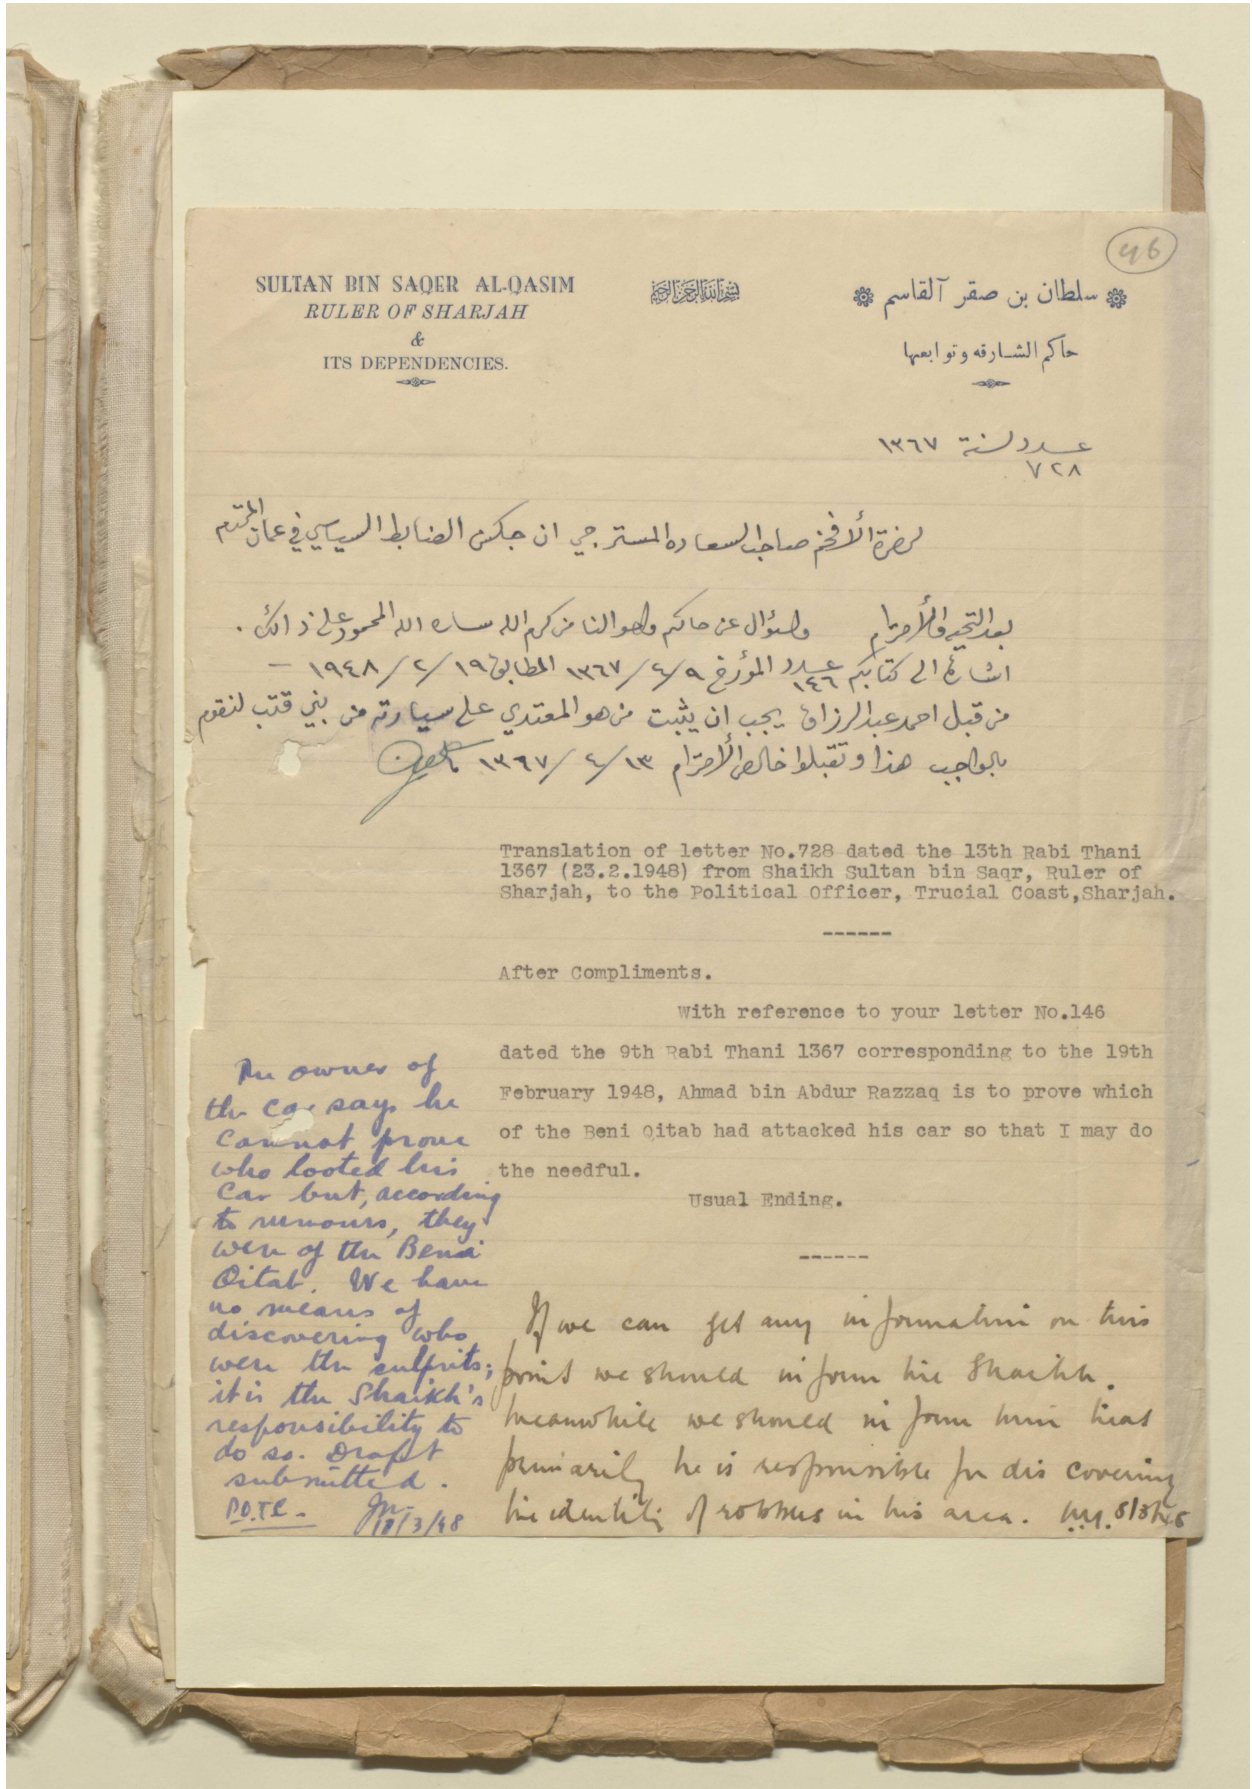 46
SULTAN BIN SAQER AL-QASIM
RULER OF SHARJAH
&
ITS DEPENDENCIES.
بسم الله الرحمن الرحيم
سلطان بن صقر آلقاسم
حاكم الشارقه وتوابعها
عدد لسنة ١٣٦٧
٧٢٨
لحضرة الأفخم صاحب السعاده المستر جي ان جكسن الضابط السياسي في عمان المحترم
بعد التحيه والأحترام والسؤال عن حالكم واحوالنا من كرم الله ساره الله المحمود على ذالك.
اشارة الى كتابكم عدد ١٤٦ المؤرخ ٩/٤/١٣٦٧ المطابق ١٩/٢/١٩٤٨ –
من قبل احمد عبدالرزاق يجب ان يثبت من هو المعتدي على سيارته من بني قتب لنقوم
بالواجب هذا وتقبلوا خالص الأحترام ١٣/٤/١٣٦٧
Translation of letter No.728 dated the 13th Rabi Thani
1367 (23.2.1948) from Shaikh Sultan bin Saqr, Ruler of
Sharjah, to the Political Officer, Trucial Coast,Sharjah.
------
After Compliments.
With reference to your letter No.146
dated the 9th Rabi Thani 1367 corresponding to the 19th
February 1948, Ahmad bin Abdur Razzaq is to prove which
of the Beni Qitab had attacked his car so that I may do
the needful.
Usual Ending.
------
The owner of
the car says he
cannot prove
who looted his
car but, according
to rumours, they
were of the Beni
Qitab. We have
no means of
discovering who
were the culprits;
it is the Shaikh's
responsibility to
do so. Draft
submitted.
P.O.T.C.
18/3/48
If we can get any information on this
point we should inform the Shaikh.
Meanwhile we should inform him that
primarily he is responsible for discovering
the identity of robbers in his area. 8/3/48